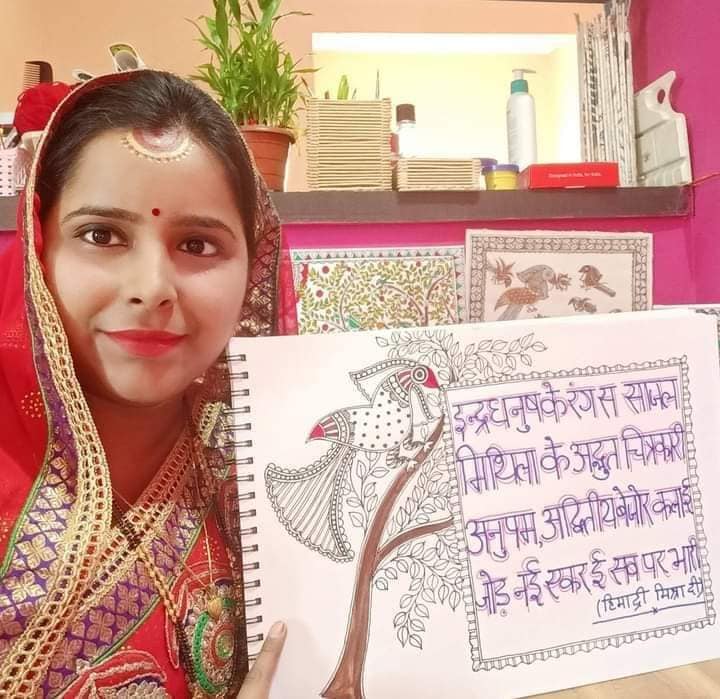 इन्द्रधनुषके रंग स साजल
मिथिला के अद्भुत चित्रकारी
अनुपम, अद्वितीय बेजोर कलाई
जोड़ नई एकर ई सब पर भारी
(हिमाद्री मिश्रा दी)
Designed in India, for India.